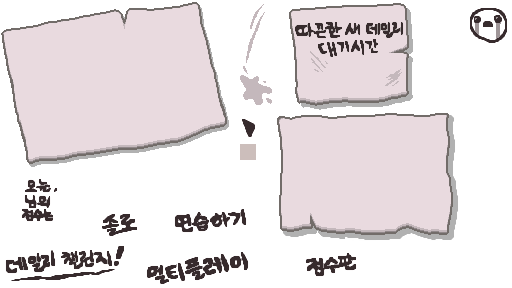 따끈한 새 데일리
대기시간
오늘,
님의
점수는
솔로
연습하기
데일리 챌린지!
멀티플레이
점수판